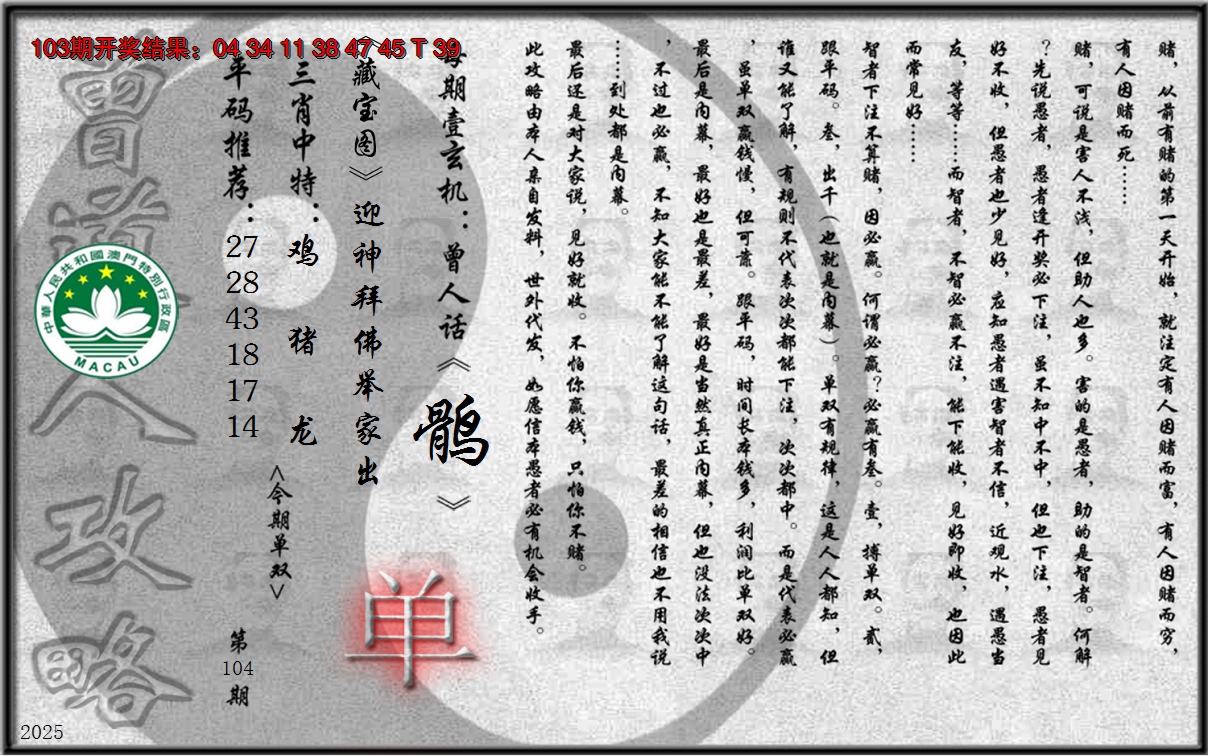 103期开奖结果：04 34 11 38 47 45 T 39
赌，从前有赌的第一天开始，就注定有人因赌而富，有人因赌而穷，
有人因赌而死……
赌，可说是害人不浅，但助人也多。害的是愚者，助的是智者。何解
？先说愚者，愚者逢开奖必下注，虽不知中不中，但也下注，愚者见
好不收，但愚者也少见好，应知愚者遇害智者不信，近观水，遇愚当
友，等等……而智者，不智必赢不注，能下能收，见好即收，也因此
而常见好……
智者下注不算赌，因必赢。何谓必赢？必赢有叁。壹，搏单双。贰，
跟平码。叁，出千（也就是内幕）。单双有规律，这是人人都知，但
谁又能了解，有规则不代表次次都能下注，次次都中。而是代表必赢
，虽单双赢钱慢，但可靠。跟平码，时间长本钱多，利润比单双好。
最后是内幕，最好也是最差，最好是当然真正内幕，但也没法次次中
，不过也必赢，不知大家能不能了解这句话，最差的相信也不用我说
……到处都是内幕。
最后还是对大家说，见好就收。不怕你赢钱，只怕你不赌。
此攻略由本人亲自发料，世外代发，如愿信本愚者必有机会收手。
每期壹玄机：曾人话《鹘》
《藏宝图》迎神拜佛举家出
单
三肖中特：鸡 猪 龙
<今期单双>
平码推荐：27 28 43 18 17 14
第104期
曾道人攻略
中華人民共和國澳門特別行政區
MACAU
2025